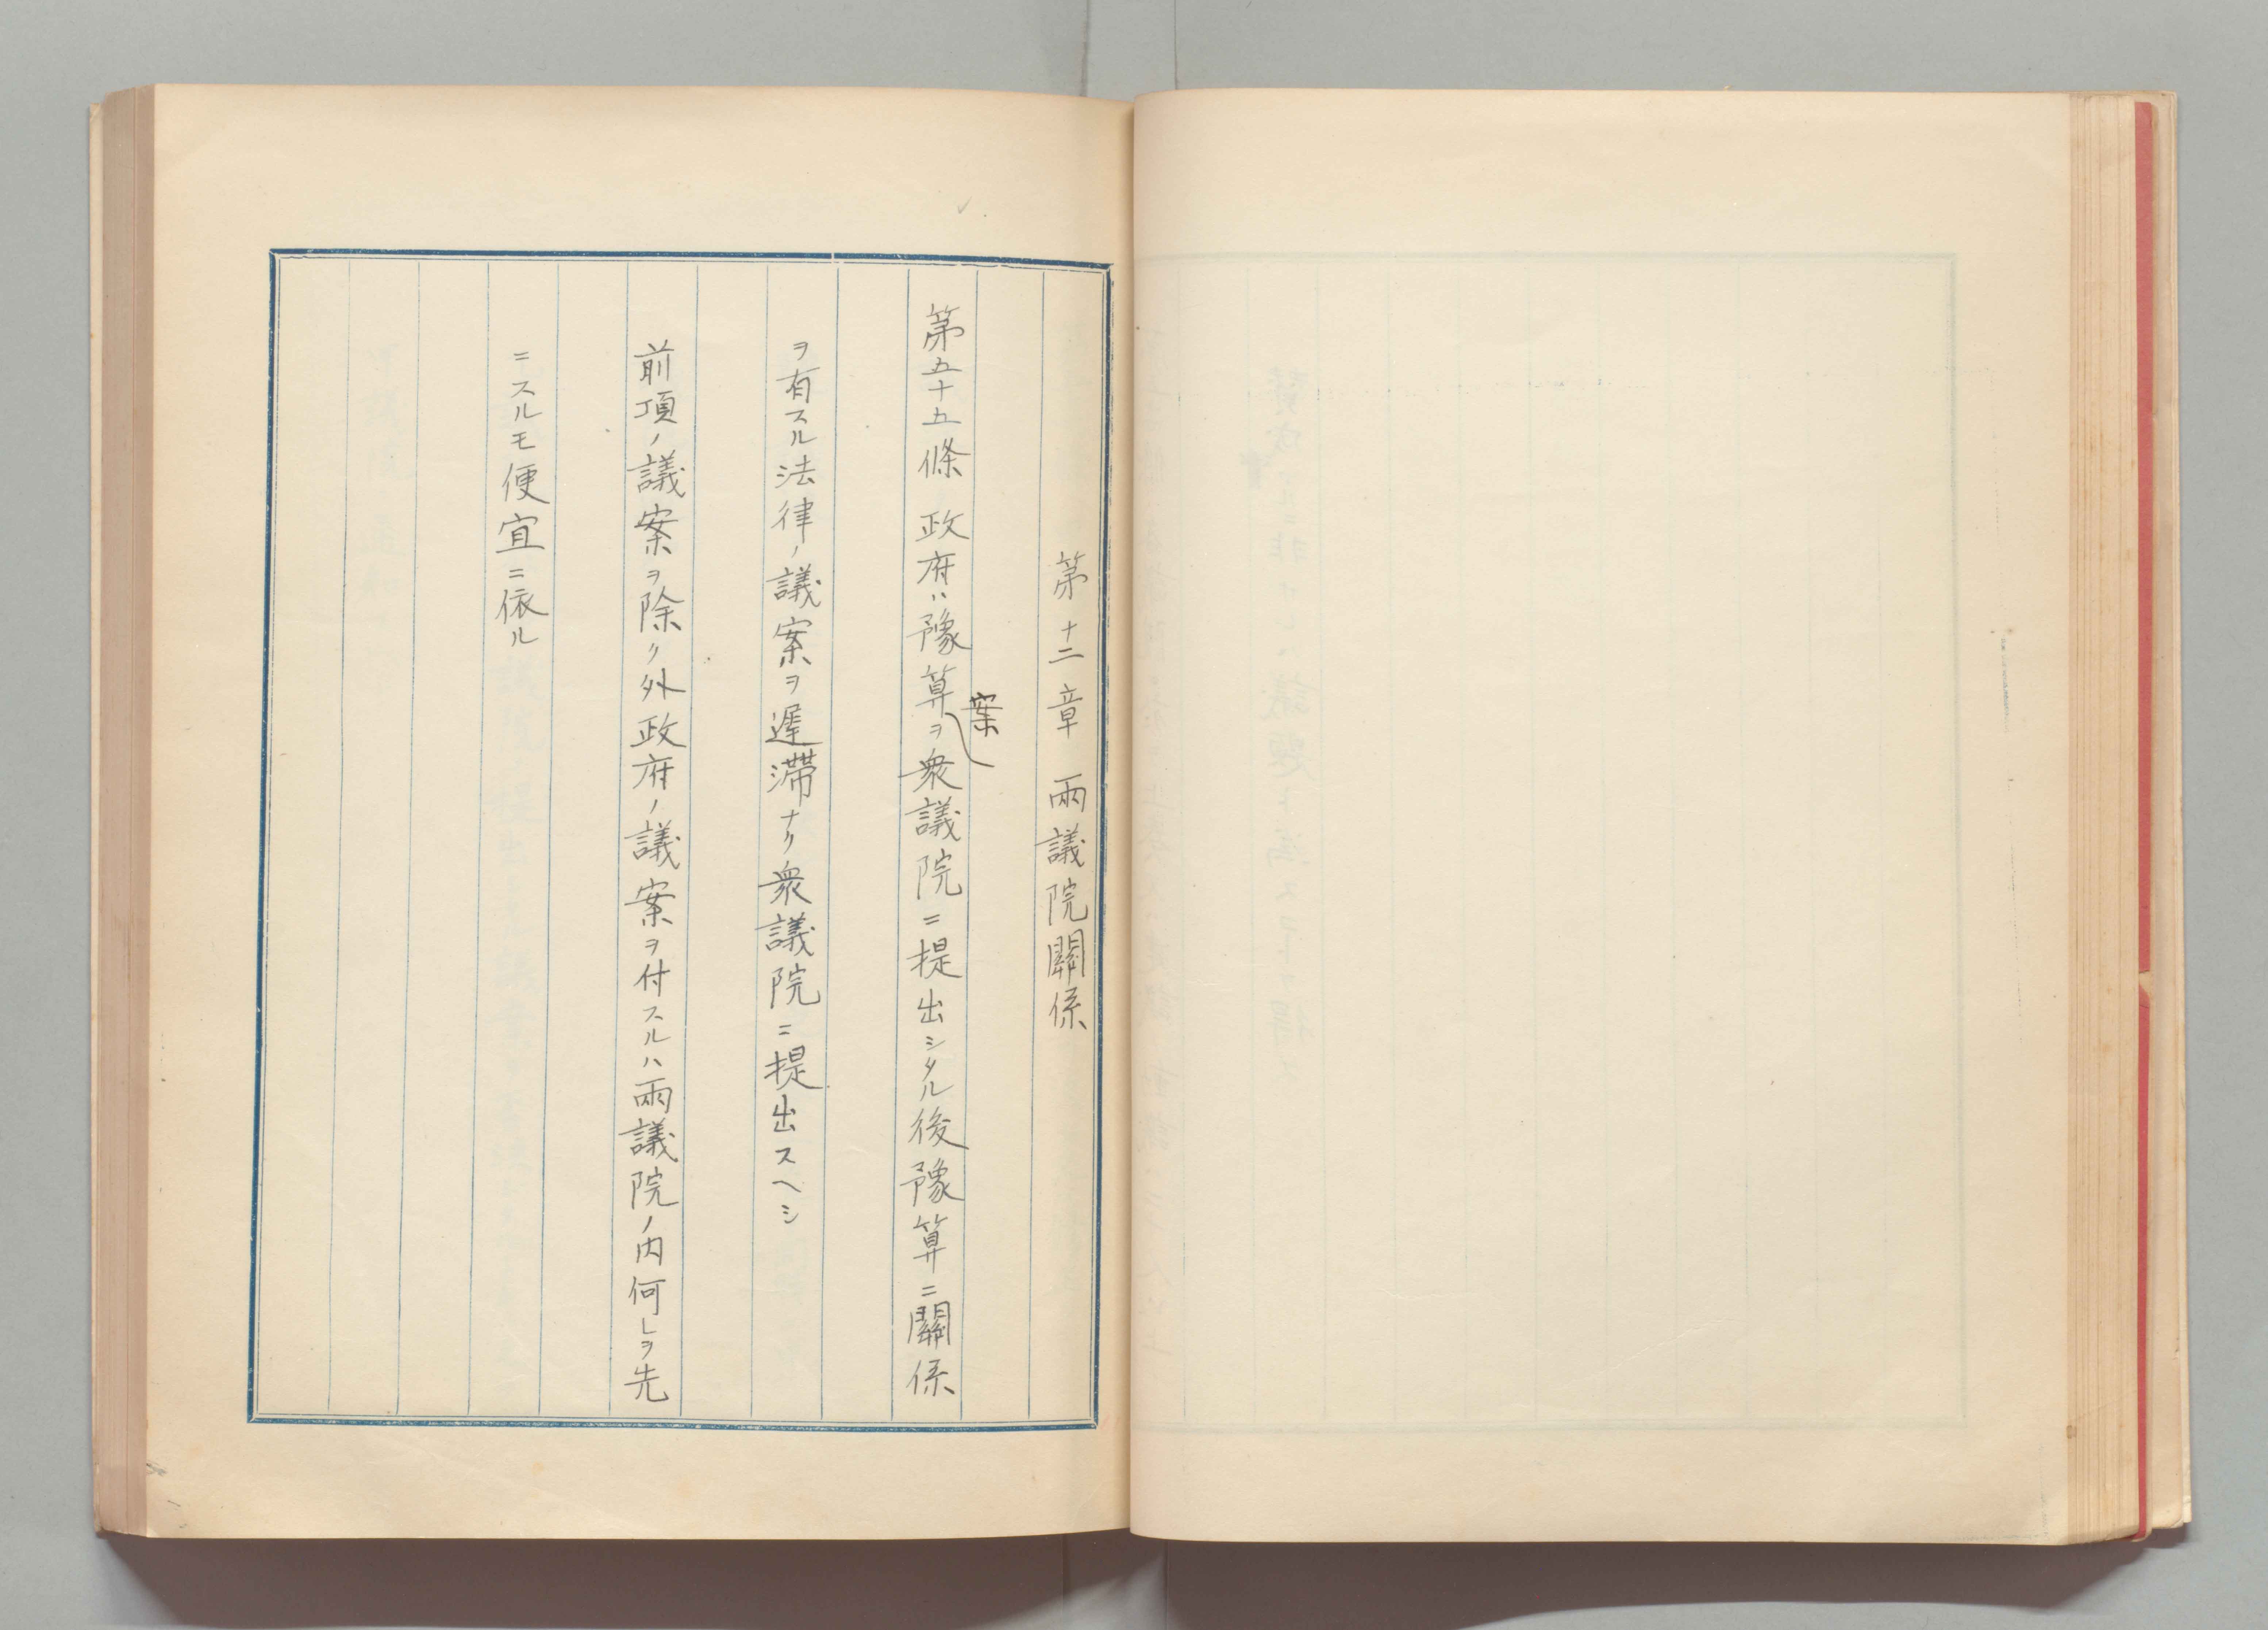 第十二章 兩議院關係
第五十五條 政府ハ豫算案ヲ衆議院ニ提出シタル後豫算ニ關係
ヲ有スル法律ノ議案ヲ遲滯ナク衆議院ニ提出スヘシ
前項ノ議案ヲ除ク外政府ノ議案ヲ付スルハ兩議院ノ内何レヲ先
ニスルモ便宜ニ依ル